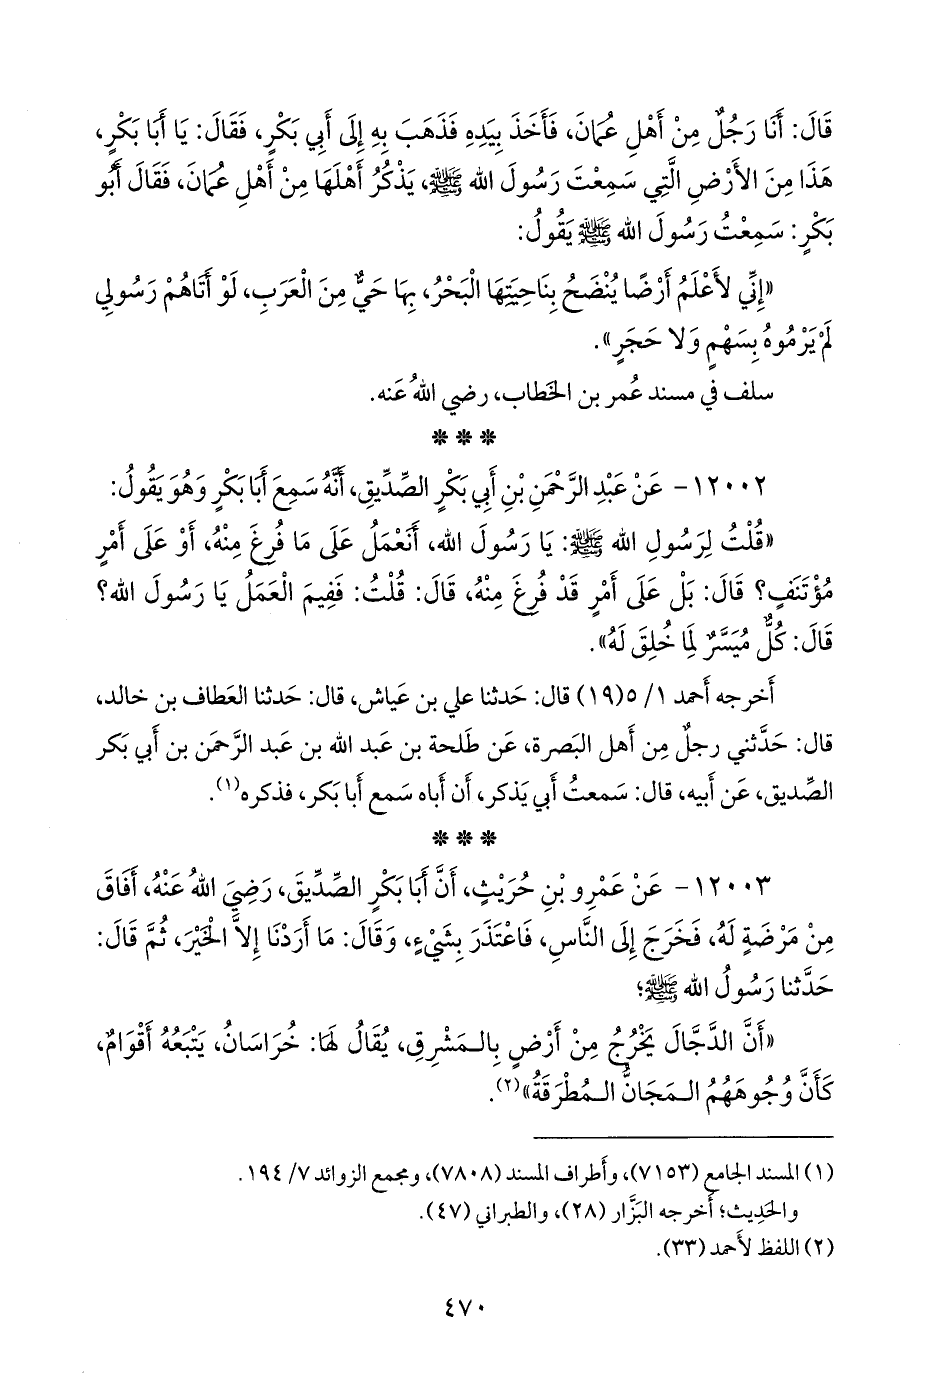 قَالَ: أَنَا رَجُلٌ مِنْ أَهْلِ عُمَانَ، فَأَخَذَ بِيَدِهِ فَذَهَبَ بِهِ إِلَى أَبِي بَكْرٍ، فَقَالَ: يَا أَبَا بَكْرٍ،
هَذَا مِنَ الأَرْضِ الَّتِي سَمِعْتَ رَسُولَ الله ﷺ، يَذْكُرُ أَهْلَهَا مِنْ أَهْلِ عُمَانَ، فَقَالَ أَبُو
بَكْرٍ: سَمِعْتُ رَسُولَ الله ﷺ يَقُولُ:
«إِنِّي لأَعْلَمُ أَرْضًا يُنْضَحُ بِنَاحِيَتِهَا الْبَحْرُ، بِهَا حَيٌّ مِنَ الْعَرَبِ، لَوْ أَتَاهُمْ رَسُولِي
لَمْ يَرْمُوهُ بِسَهْمٍ وَلا حَجَرٍ».
سلف في مسند عُمر بن الخطاب، رضي اللهُ عَنه.
* * *
١٢٠٠٢- عَنْ عَبْدِ الرَّحْمَنِ بْنِ أَبِي بَكْرٍ الصِّدِّيقِ، أَنَّهُ سَمِعَ أَبَا بَكْرٍ وَهُوَ يَقُولُ:
«قُلْتُ لِرَسُولِ الله ﷺ: يَا رَسُولَ الله، أَنَعْمَلُ عَلَى مَا فُرِغَ مِنْهُ، أَوْ عَلَى أَمْرٍ
مُؤْتَنَفٍ؟ قَالَ: بَلْ عَلَى أَمْرٍ قَدْ فُرِغَ مِنْهُ، قَالَ: قُلْتُ: فَفِيمَ الْعَمَلُ يَا رَسُولَ الله؟
قَالَ: كُلٌّ مُيَسَّرٌ لِمَا خُلِقَ لَهُ».
أَخرجه أَحمد ١/ ٥(١٩) قال: حَدثنا علي بن عَياش، قال: حَدثنا العَطاف بن خالد،
قال: حَدَّثني رجلٌ مِن أَهل البَصرة، عَن طَلحة بن عَبد الله بن عَبد الرَّحمَن بن أَبي بَكر
الصِّديق، عَن أَبيه، قال: سَمعتُ أَبي يَذكر، أَن أَباه سَمع أَبا بَكر، فذكره(١).
* * *
١٢٠٠٣- عَنْ عَمْرِو بْنِ حُرَيْثٍ، أَنَّ أَبَا بَكْرٍ الصِّدِّيقَ، رَضِيَ اللهُ عَنْهُ، أَفَاقَ
مِنْ مَرْضَةٍ لَهُ، فَخَرَجَ إِلَى النَّاسِ، فَاعْتَذَرَ بِشَيْءٍ، وَقَالَ: مَا أَرَدْنَا إِلاَّ الْخَيْرَ، ثُمَّ قَالَ:
حَدَّثنا رَسُولُ الله ﷺ؛
«أَنَّ الدَّجَّالَ يَخْرُجُ مِنْ أَرْضٍ بِالـمَشْرِقِ، يُقَالُ لَهَا: خُرَاسَانُ، يَتْبَعُهُ أَقْوَامٌ،
كَأَنَّ وُجُوهَهُمُ الـمَجَانُّ الـمُطْرَقَةُ»(٢).
(١) المسند الجامع (٧١٥٣)، وأَطراف المسند (٧٨٠٨)، ومجمع الزوائد ٧/ ١٩٤.
والحَدِيث؛ أَخرجه البَزَّار (٢٨)، والطبراني (٤٧).
(٢) اللفظ لأَحمد (٣٣).
٤٧٠